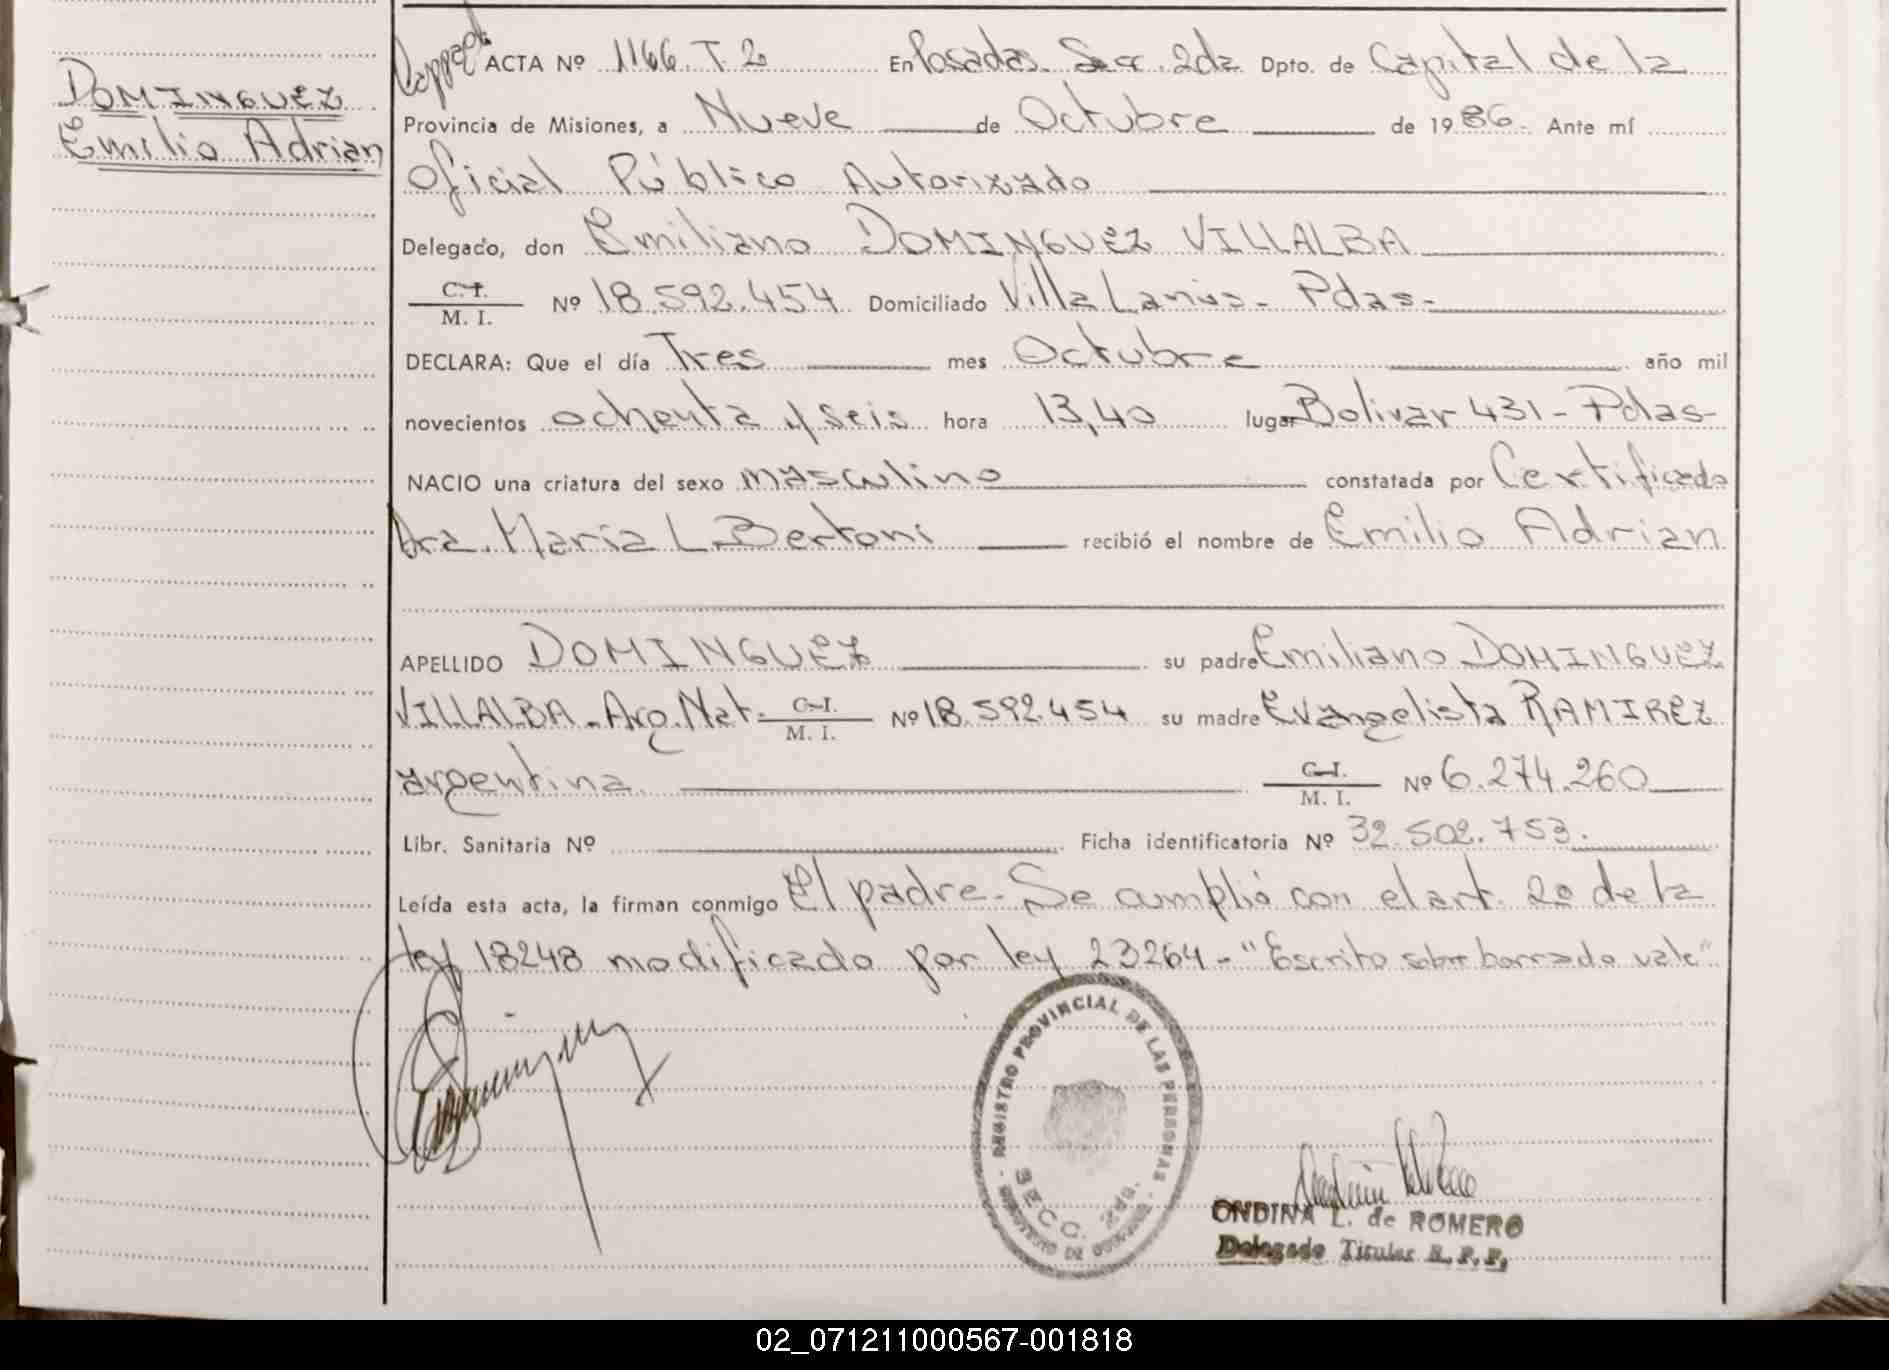 DOMINGUEZ
Emilio Adrian
ACTA Nº 1166. T. 2 En Posadas. Secc. 2da Dpto. de Capital de la
Provincia de Misiones, a Nueve de Octubre de 1986. Ante mí
Oficial Público Autorizado
Delegado, don Emiliano DOMINGUEZ VILLALBA
C.I.
M. I. Nº 18.592.454 Domiciliado Villa Lanus - Pdas -
DECLARA: Que el día Tres mes Octubre año mil
novecientos ochenta y seis hora 13,40 lugar Bolivar 431 - Pdas -
NACIO una criatura del sexo masculino constatada por Certificado
Dra. Maria L. Bertoni recibió el nombre de Emilio Adrian
APELLIDO DOMINGUEZ su padre Emiliano DOMINGUEZ
VILLALBA - Arg. Nat. C.I. M. I. Nº 18.592.454 su madre Evangelista RAMIREZ
argentina. C.I. M. I. Nº 6.274.260
Libr. Sanitaria Nº Ficha identificatoria Nº 32.502.753.
Leída esta acta, la firman conmigo El padre - Se cumplió con el art. 2o de la
ley 18248 modificado por ley 23264 - "Escrito sobre borrado vale"
REGISTRO PROVINCIAL DE LAS PERSONAS
SECC. 2da.
ONDINA L. de ROMERO
Delegado Titular R. P. P.
02_071211000567-001818